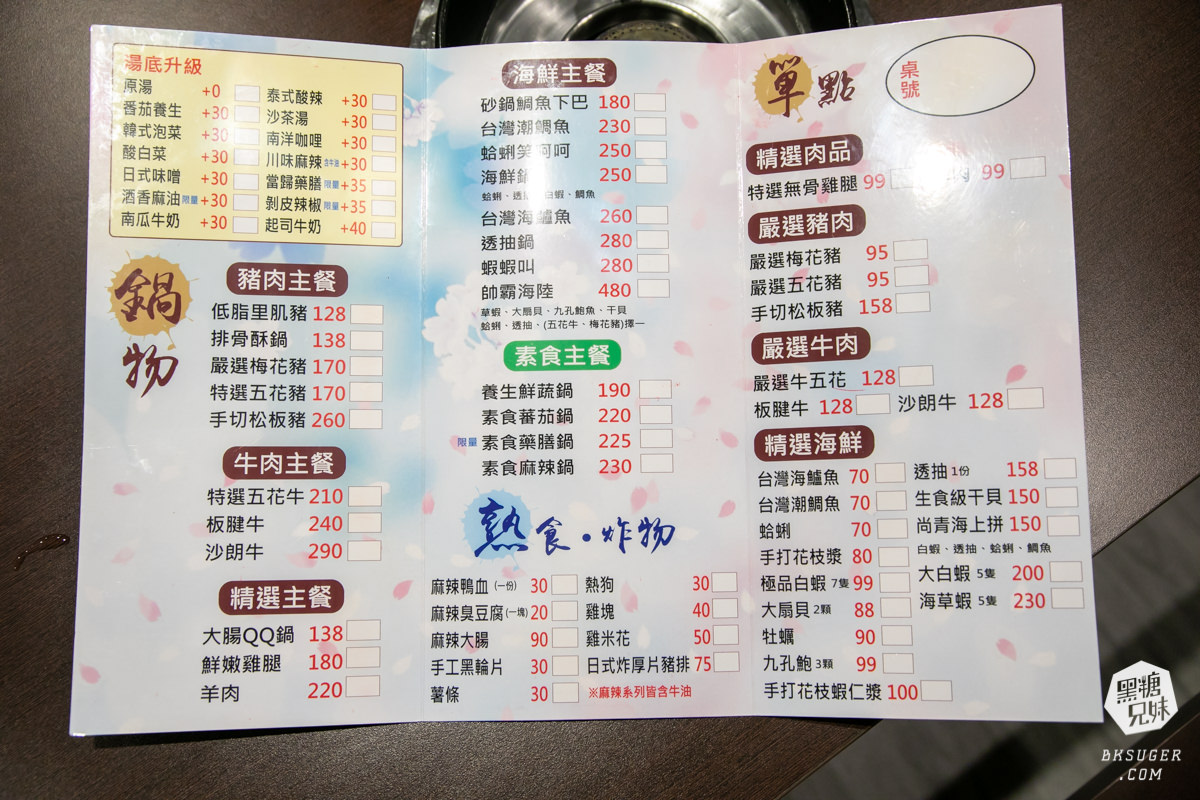 湯底升級
原湯 +0
番茄養生 +30
韓式泡菜 +30
酸白菜 +30
日式味噌 +30
酒香麻油 限量 +30
南瓜牛奶 +30
泰式酸辣 +30
沙茶湯 +30
南洋咖哩 +30
川味麻辣 含牛油 +30
當歸藥膳 限量 +35
剝皮辣椒 限量 +35
起司牛奶 +40
鍋物
豬肉主餐
低脂里肌豬 128
排骨酥鍋 138
嚴選梅花豬 170
特選五花豬 170
手切松板豬 260
牛肉主餐
特選五花牛 210
板腱牛 240
沙朗牛 290
精選主餐
大腸QQ鍋 138
鮮嫩雞腿 180
羊肉 220
海鮮主餐
砂鍋鯛魚下巴 180
台灣潮鯛魚 230
蛤蜊笑呵呵 250
海鮮鍋 250
蛤蜊、透抽、白蝦、鯛魚
台灣海鱸魚 260
透抽鍋 280
蝦蝦叫 280
帥霸海陸 480
草蝦、大扇貝、九孔鮑魚、干貝
蛤蜊、透抽、(五花牛、梅花豬)擇一
素食主餐
養生鮮蔬鍋 190
素食蕃茄鍋 220
限量 素食藥膳鍋 225
素食麻辣鍋 230
熟食・炸物
麻辣鴨血(一份) 30
麻辣臭豆腐(一塊) 20
麻辣大腸 90
手工黑輪片 30
薯條 30
熱狗 30
雞塊 40
雞米花 50
日式炸厚片豬排 75
※麻辣系列皆含牛油
單點
桌號
精選肉品
特選無骨雞腿 99
肉 99
嚴選豬肉
嚴選梅花豬 95
嚴選五花豬 95
手切松板豬 158
嚴選牛肉
嚴選牛五花 128
板腱牛 128 沙朗牛 128
精選海鮮
台灣海鱸魚 70
台灣潮鯛魚 70
蛤蜊 70
手打花枝漿 80
極品白蝦 7隻 99
大扇貝 2顆 88
牡蠣 90
九孔鮑 3顆 99
手打花枝蝦仁漿 100
透抽 1份 158
生食級干貝 150
尚青海上拼 150
白蝦、透抽、蛤蜊、鯛魚
大白蝦 5隻 200
海草蝦 5隻 230
黑糖兄妹
BKSUGER
.COM